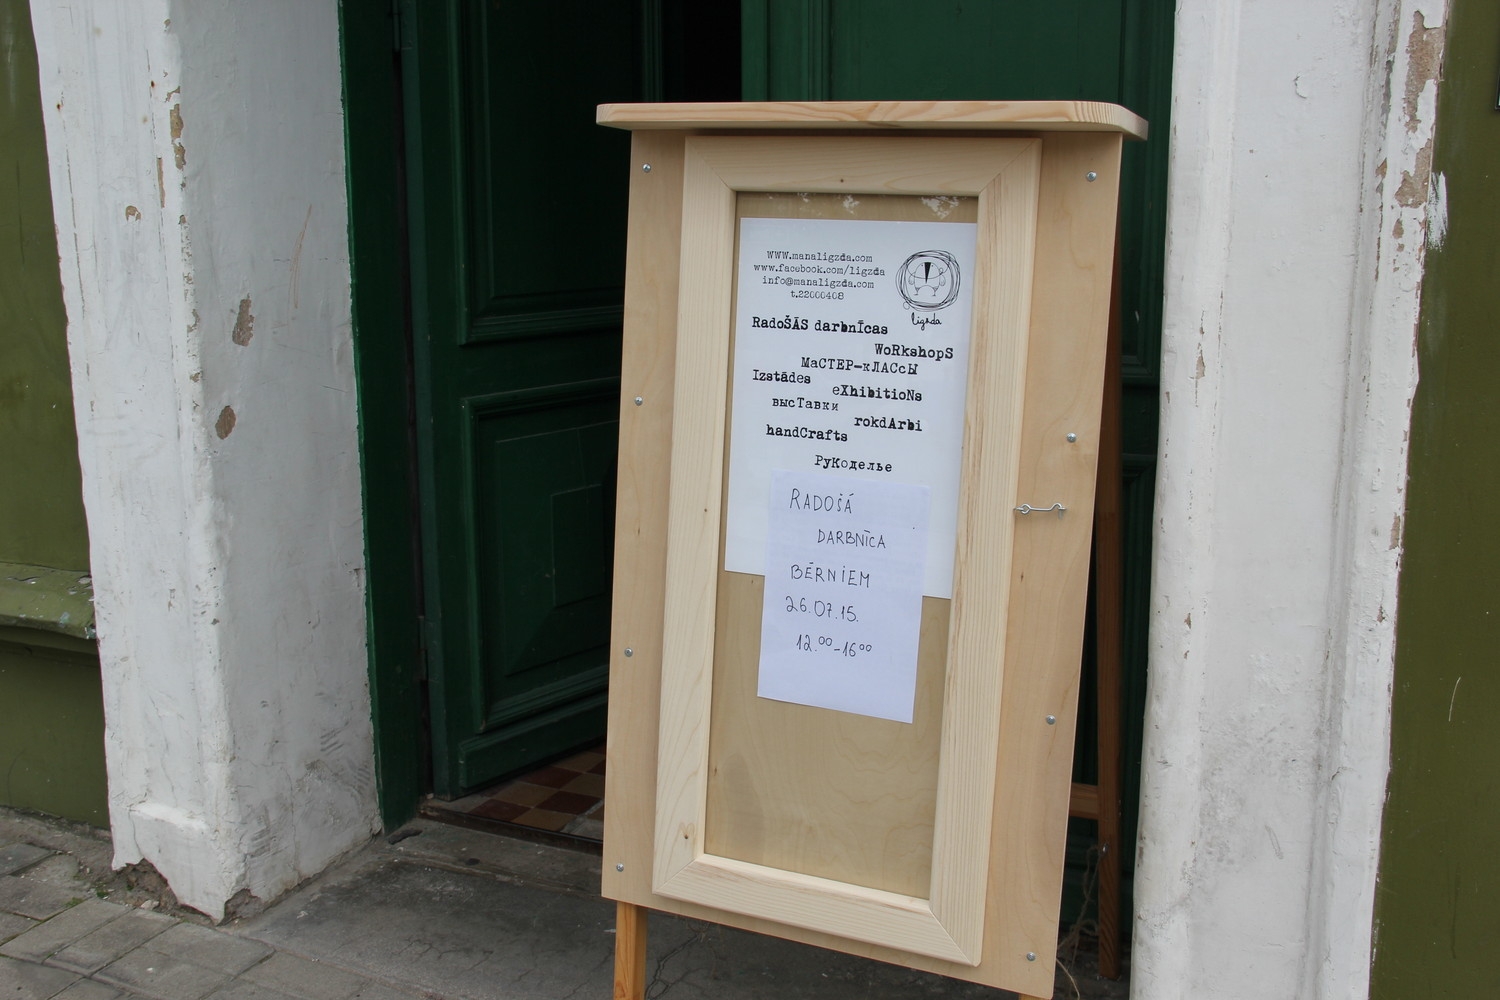 www.manaligzda.com
www.facebook.com/ligzda
info@manaligzda.com
t.22000408
ligzda
RadoŠĀS darbnīcas
WoRkshopS
МаСТЕР-кЛАСсЫ
Izstādes
eXhibitioNs
высТавки
rokdArbi
handCrafts
РуКоделье
RADOŠĀ
DARBNĪCA
BĒRNIEM
26.07.15.
12.00-16 00